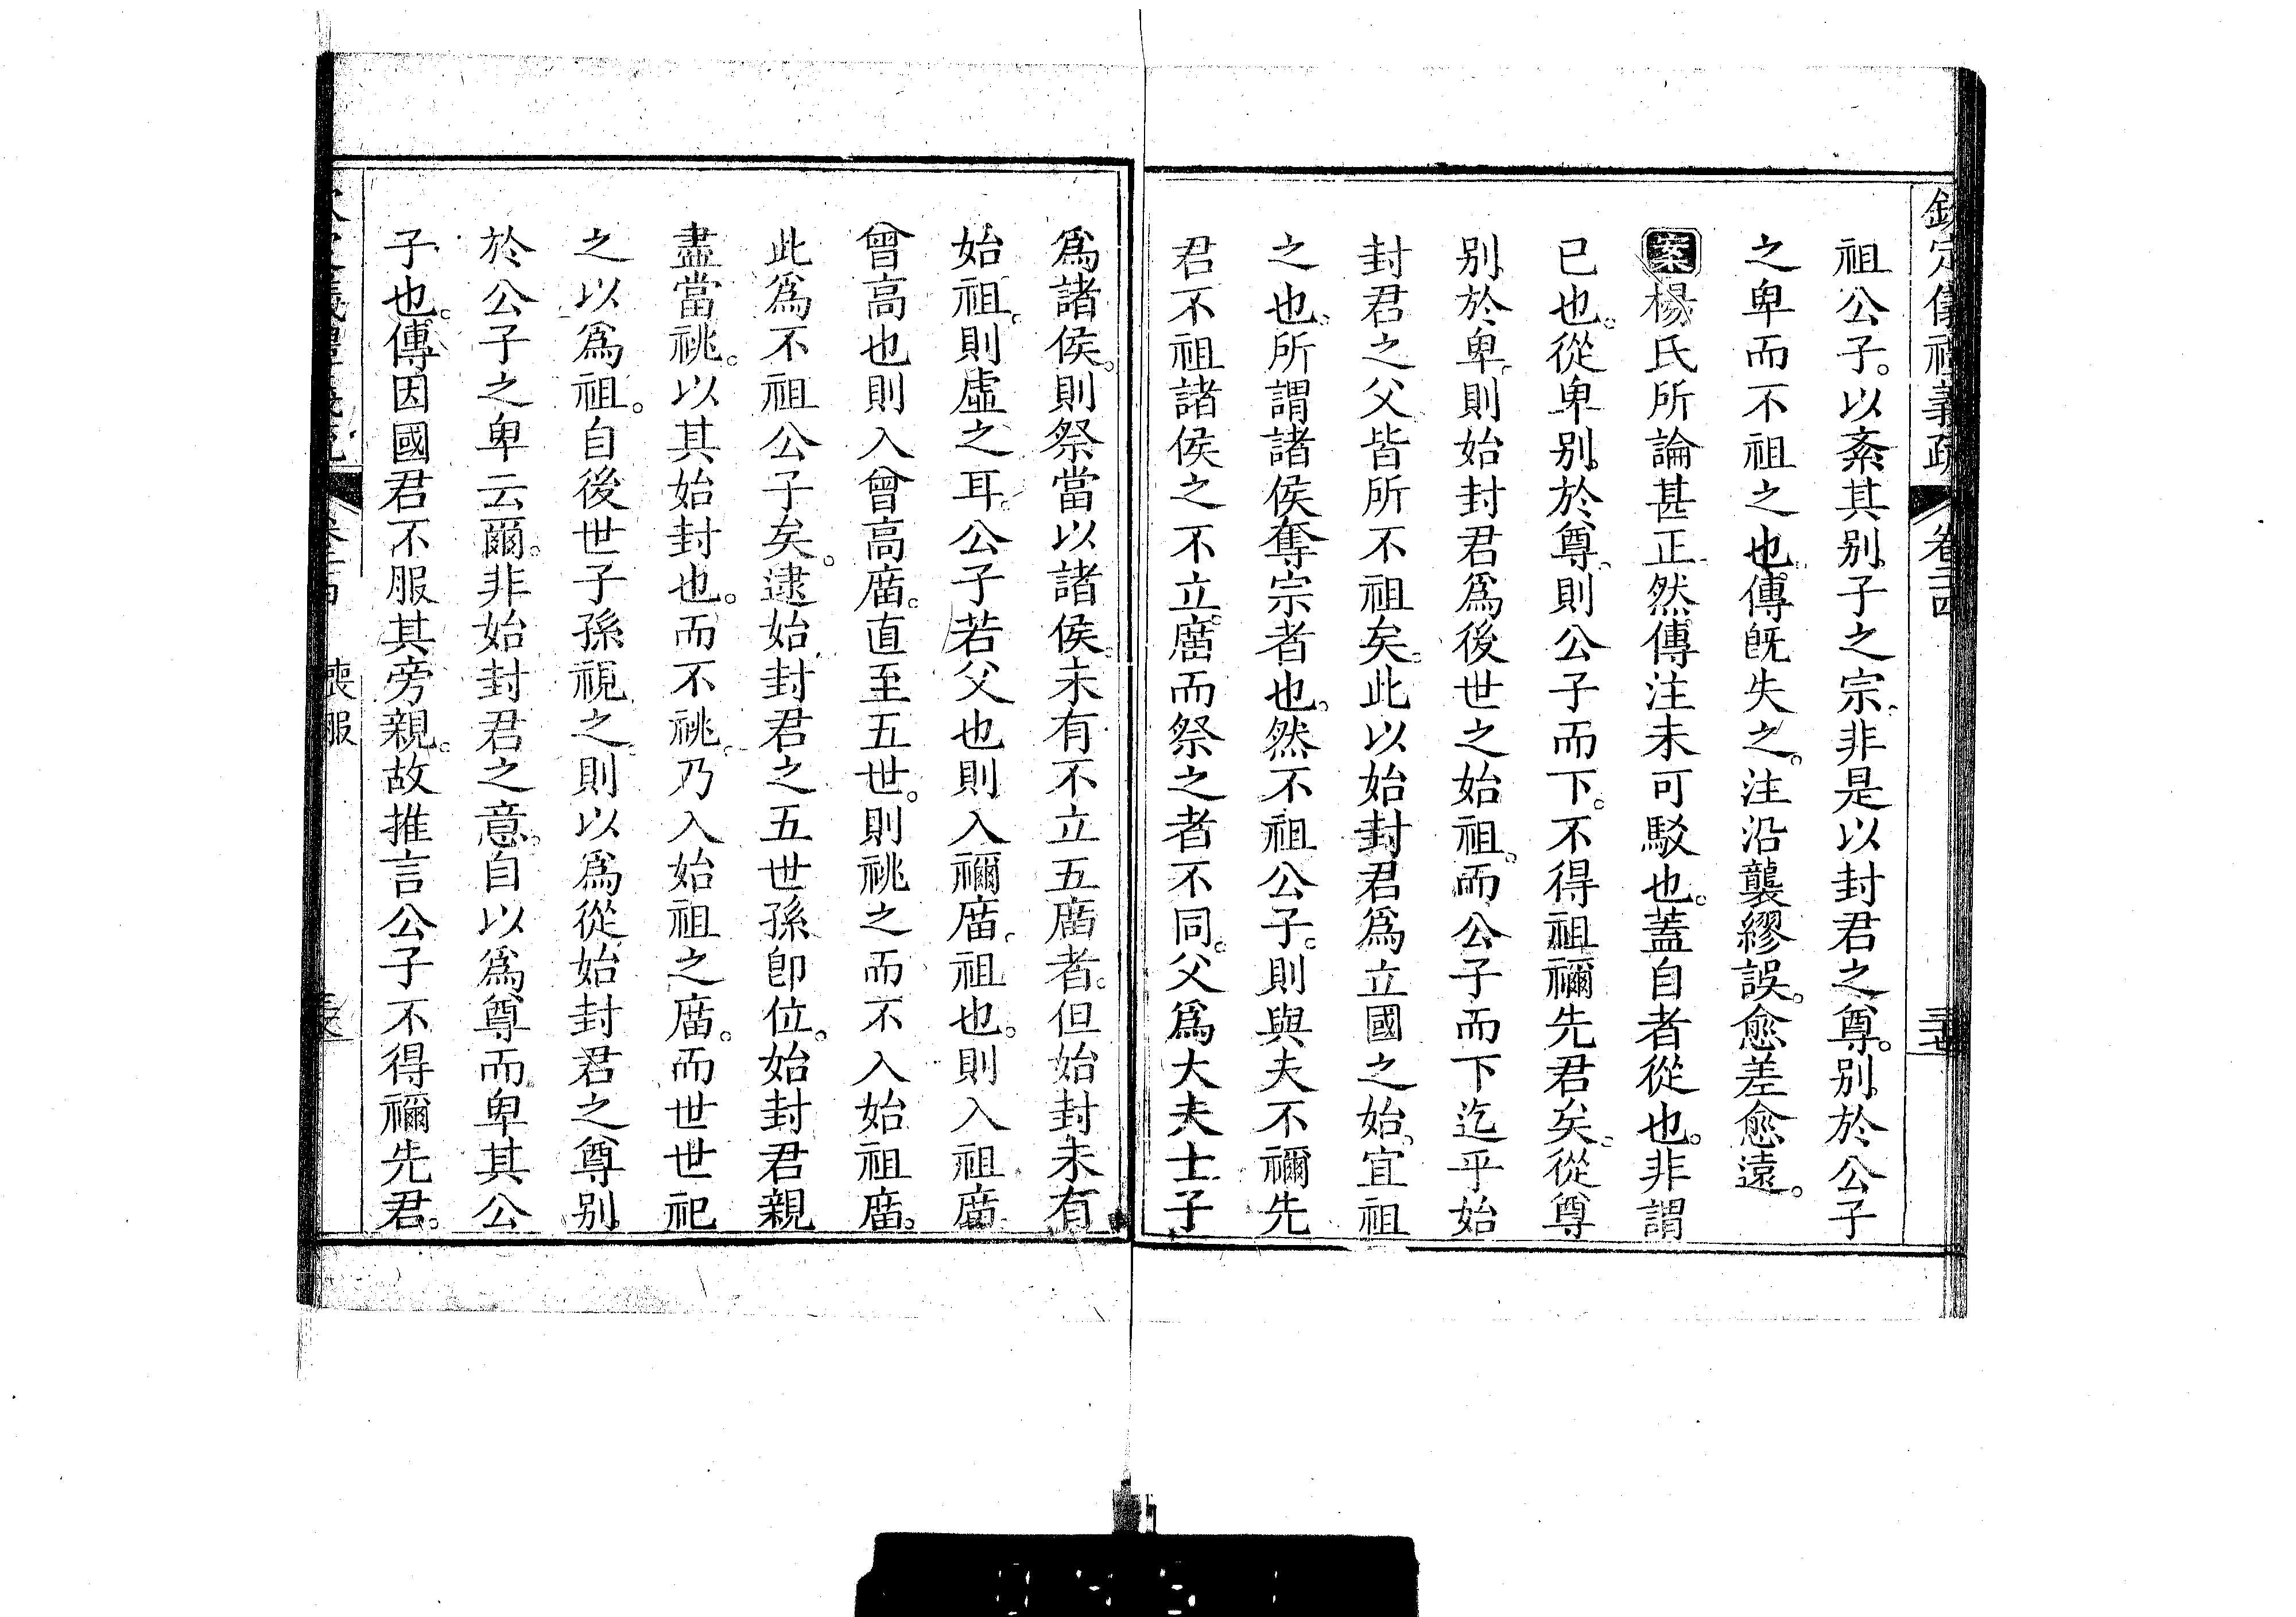 欽定儀禮義疏 卷二四 三七
祖公子。以紊其別子之宗。非是以封君之尊。別於公子
之卑而不祖之也。傳既失之。注沿襲繆誤。愈差愈遠。
案楊氏所論甚正。然傳注未可駁也。蓋自者從也。非謂
已也。從卑別於尊。則公子而下。不得祖禰先君矣。從尊
別於卑。則始封君爲後世之始祖。而公子而下迄乎始
封君之父皆所不祖矣。此以始封君爲立國之始。宜祖
之也。所謂諸侯奪宗者也。然不祖公子。則與夫不禰先
君不祖諸侯之不立廟而祭之者不同。父爲大夫士子
爲諸侯。則祭當以諸侯。未有不立五廟者。但始封未有
始祖。則虛之耳。公子若父也則入禰廟。祖也。則入祖廟
曾高也則入曾高廟。直至五世。則祧之而不入始祖廟。
此爲不祖公子矣。逮始封君之五世孫卽位。始封君親
盡當祧。以其始封也。而不祧。乃入始祖之廟。而世世祀
之以爲祖。自後世子孫視之。則以爲從始封君之尊別
於公子之卑云爾。非始封君之意。自以爲尊而卑其公
子也。傳因國君不服其旁親。故推言公子不得禰先君。
喪服